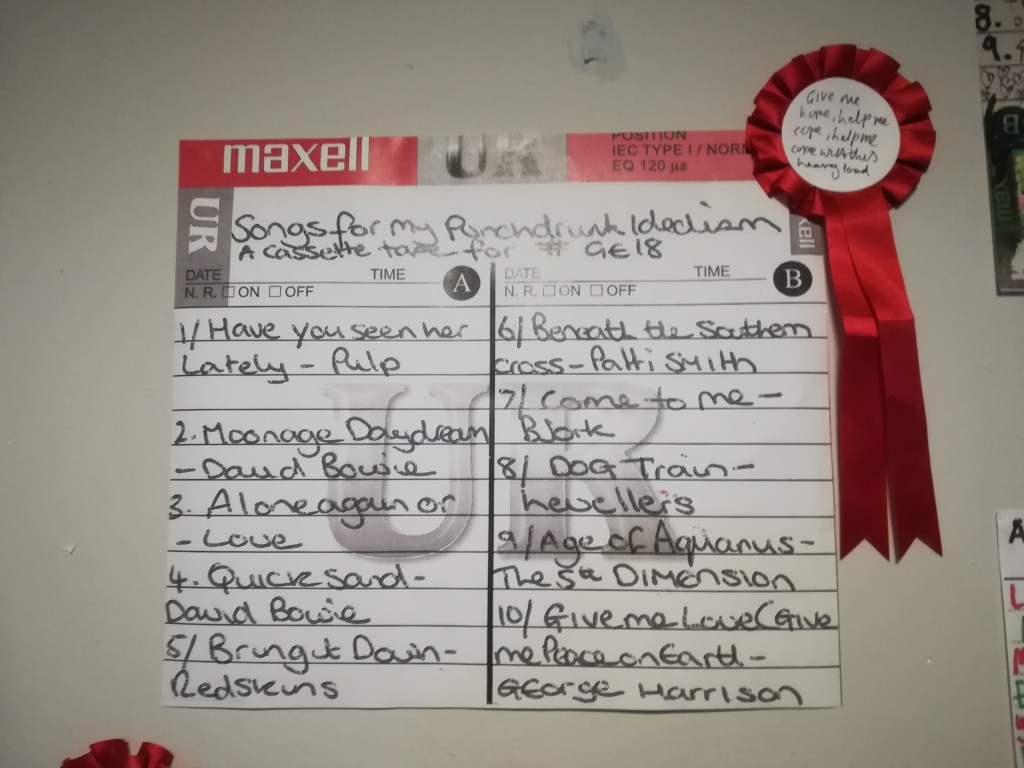 maxell
UR
POSITION
IEC TYPE I / NORM
EQ 120 µs
Give me
hope, help me
cope, help me
cope with this
heavy load
UR
Songs for my Punchdrunk Idealism
A cassette tape for # GE18
xell
DATE TIME A
N. R. ☐ ON ☐ OFF
1/ Have you seen her
Lately - Pulp
2. Moonage Daydream
- David Bowie
3. Alone again or
- Love
4. Quicksand -
David Bowie
5/ Bring it Down -
Redskins
DATE TIME B
N. R. ☐ ON ☐ OFF
6/ Beneath the Southern
cross - Patti SMITH
7/ Come to me -
BJork
8/ DOG Train -
Levellers
9/ Age of Aquarius -
The 5th DIMENSION
10/ Give me Love (Give
me Peace on Earth -
GEorge Harrison
8.
9.